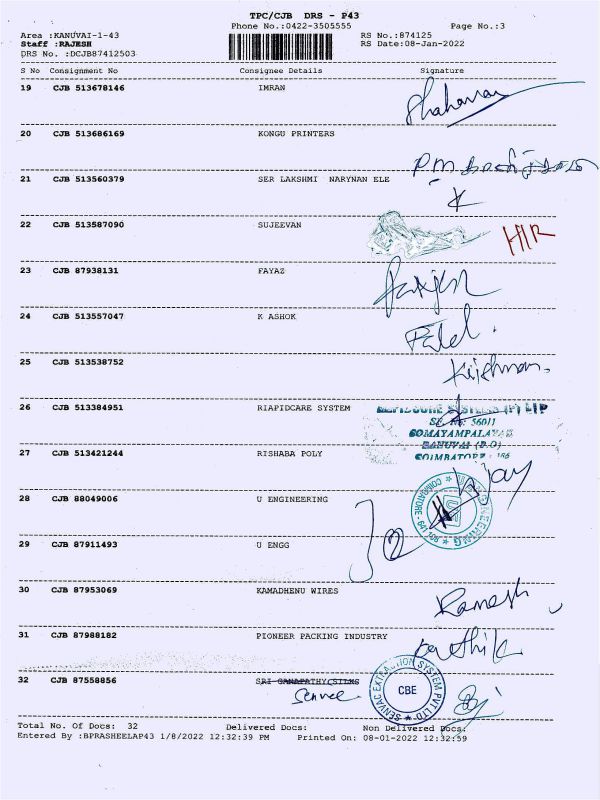 TPC/CJB DRS - P43
Phone No.:0422-3505555 Page No.:3
Area :KANUVAI-1-43 RS No.:874125
Staff :RAJESH RS Date:08-Jan-2022
DRS No. :DCJB87412503
S No Consignment No Consignee Details Signature
19 CJB 513678146 IMRAN
20 CJB 513686169 KONGU PRINTERS
21 CJB 513560379 SER LAKSHMI NARYNAN ELE
22 CJB 513587090 SUJEEVAN
HR
23 CJB 87938131 FAYAZ
24 CJB 513557047 K ASHOK
Patel.
25 CJB 513538752
Krishnan.
26 CJB 513384951 RIAPIDCARE SYSTEM
56011
SOMAYAMPALAYAM
KANUVAI (P.O)
COIMBATORE
27 CJB 513421244 RISHABA POLY
Ajay
28 CJB 88049006 U ENGINEERING
29 CJB 87911493 U ENGG
2
30 CJB 87953069 KAMADHENU WIRES
Ramesh
31 CJB 87988182 PIONEER PACKING INDUSTRY
Karthik
32 CJB 87558856 SRI GANAPATHY SILKS
SENVAC EXTRACTION SYSTEM PVT LTD
CBE
Total No. Of Docs: 32 Delivered Docs: Non Delivered Docs:
Entered By :BPRASHEELAP43 1/8/2022 12:32:39 PM Printed On: 08-01-2022 12:32:59